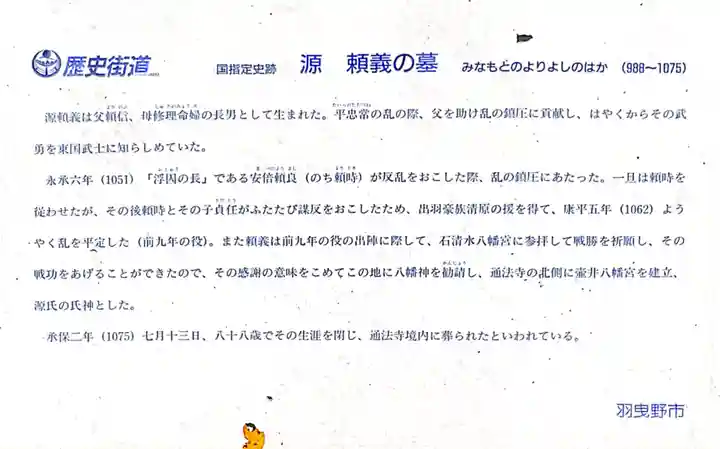 歴史街道
国指定史跡 源 頼義の墓 みなもとのよりよしのはか (988〜1075)
源頼義は父頼信、母修理命婦の長男として生まれた。平忠常の乱の際、父を助け乱の鎮圧に貢献し、はやくからその武
勇を東国武士に知らしめていた。
永承六年(1051)「浮囚の長」である安倍頼良(のち頼時)が反乱をおこした際、乱の鎮圧にあたった。一旦は頼時を
従わせたが、その後頼時とその子貞任がふたたび謀反をおこしたため、出羽豪族清原の援を得て、康平五年(1062)よう
やく乱を平定した(前九年の役)。また頼義は前九年の役の出陣に際して、石清水八幡宮に参拝して戦勝を祈願し、その
戦功をあげることができたので、その感謝の意味をこめてこの地に八幡神を勧請し、通法寺の北側に壷井八幡宮を建立、
源氏の氏神とした。
承保二年(1075)七月十三日、八十八歳でその生涯を閉じ、通法寺境内に葬られたといわれている。
羽曳野市